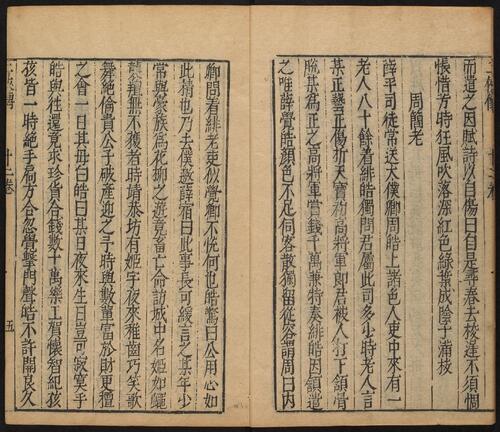 而遣之因賦詩以自傷曰自是尋春去校遲不須惆
悵惜方時狂風吹落深紅色綠葉成陰子滿枝
周簡老
薛平司徒常送大僕卿周皓上諸色人吏中來有一
老人八十餘着緋皓獨問君屬此司多少時老人言
某正藝正傷折天寶初高將軍郎君被人打下頷骨
脫某為正之高將軍賞錢千萬兼特奏緋皓因頷遣
之唯薛覺皓顏色不足伺客散獨留從容謂周曰內
卿問着緋老吏似覺卿不恱何也皓驚曰公用心如
此精也乃去僕邀薛宿曰此事長可緩言之某年少
常與豪族為花柳之遊竟畜亡命訪城中名姬如蠅
襲羶無不獲者時靖恭坊有姬字夜來稚齒巧笑歌
舞絕倫貴公子破產迎之予時與數輩富於財更擅
之會一日其母白皓曰某日夜來生日豈可寂寞乎
皓與往還竟求珍貨合錢數十萬樂工賀懷智紀孩
孩皆一時絕手扃方合忽覺擊門聲皓不許開良久
十二卷
五